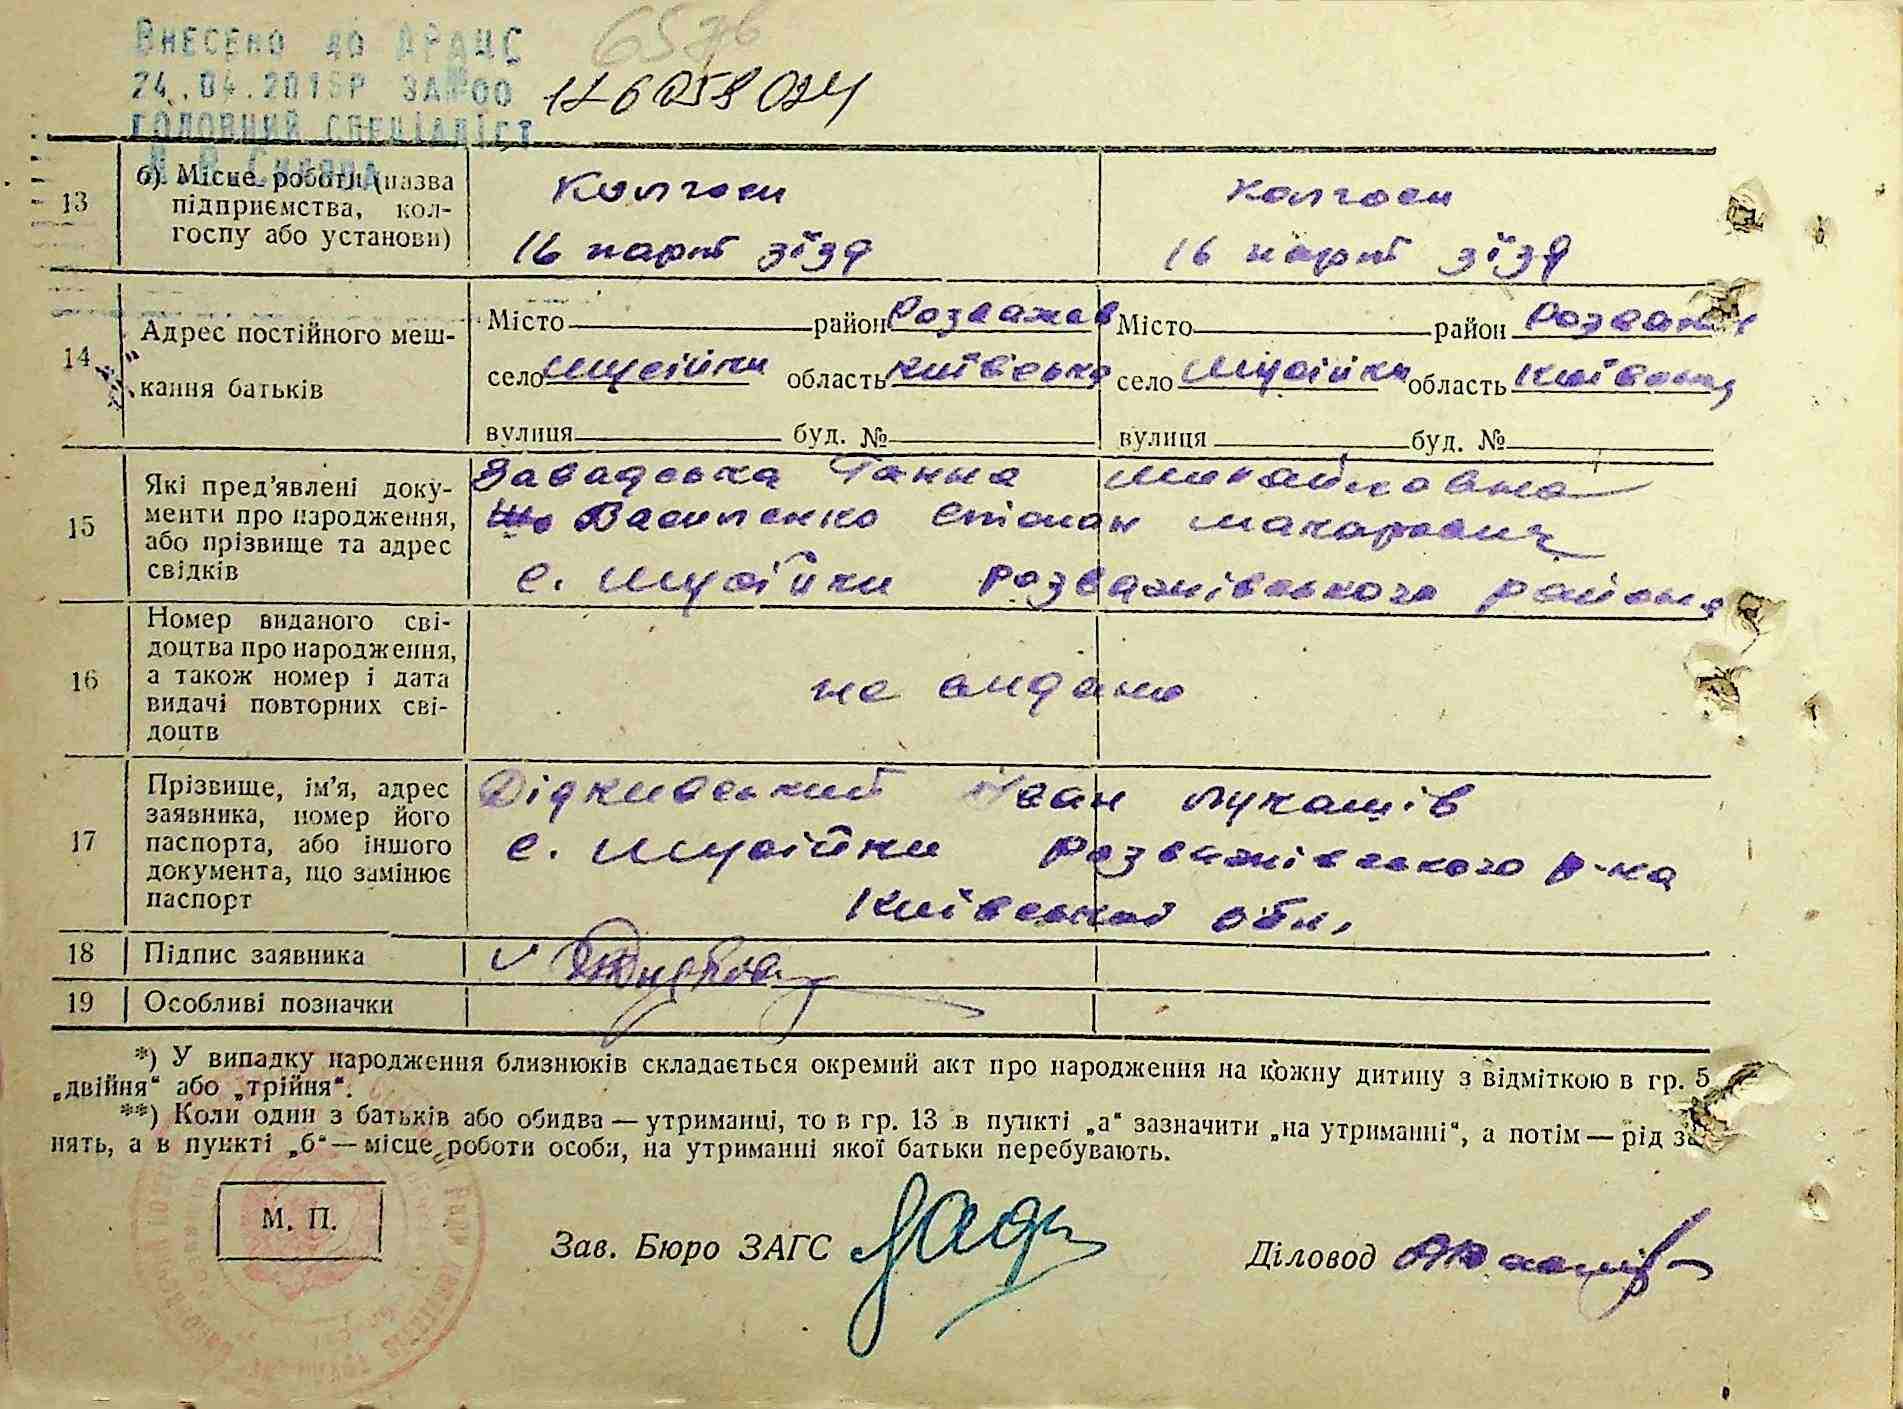 Внесено до ДРАЦС
24.04.2015р за №00
головний спеціаліст
6576
126258024
13
б) Місце роботи (назва підприємства, колгоспу або установи)
Колгосп
16 парт зїзд
Колгосп
16 парт зїзд
14
Адрес постійного меш-
кання батьків
Місто район Розважев
село Мусійки область Київсько
вулиця буд. №
Місто район Розваж
село Мусійки область Київська
вулиця буд. №
15
Які пред’явлені доку-
менти про народження,
або прізвище та адрес
свідків
Завадська Ганна Михайловна
Василенко Стіпан Макарович
с. Мусійки Розважівського района
16
Номер виданого сві-
доцтва про народження,
а також номер і дата
видачі повторних сві-
доцтв
не видано
17
Прізвище, ім’я, адрес
заявника, номер його
паспорта, або іншого
документа, що замінює
паспорт
Дідкивський Іван Лукашів
с. Мусійки Розважівського р-на
Київської обл.
18
Підпис заявника
19
Особливі позначки
*) У випадку народження близнюків складається окремий акт про народження на кожну дитину з відміткою в гр. 5
„двійня“ або „трійня“.
**) Коли один з батьків або обидва — утриманці, то в гр. 13 в пункті „а“ зазначити „на утриманні“, а потім — рід за
нять, а в пункті „б“ — місце роботи особи, на утриманні якої батьки перебувають.
М. П.
Зав. Бюро ЗАГС
Діловод